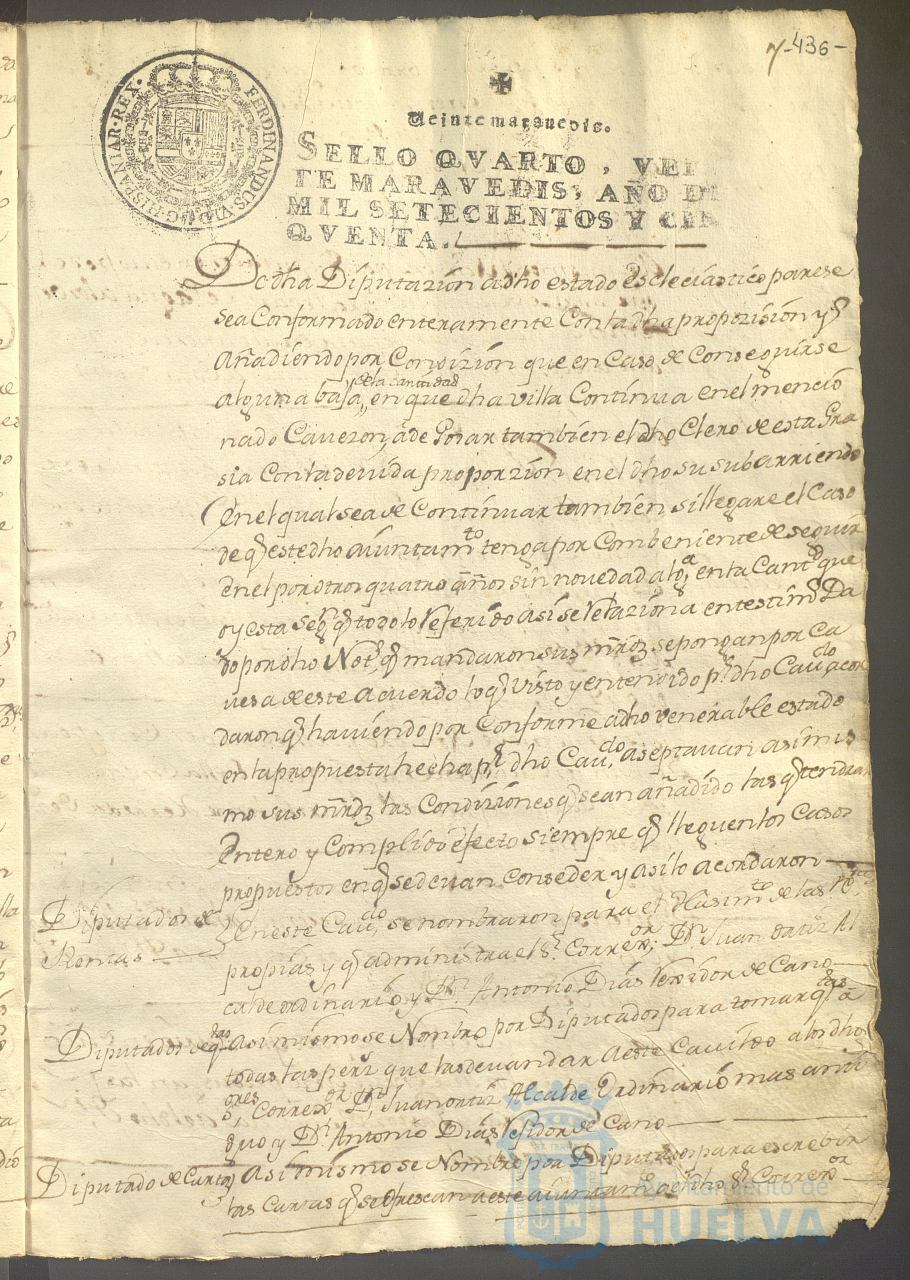 7-436-
FERDINANDUS·VI·D·G·HISPANIAR·REX·
Veinte maravedis.
SELLO QVARTO, VEI
TE MARAVEDIS, AÑO DE
MIL SETECIENTOS Y CIN
QVENTA.
Dha Diputazion adho estado esclesiastico parese
sea Conformado enteramente Con tadha proporision y
Añadiendo por Condizion que en Caso de Conseguirse
de la cantidad
alguna baja, en que dha villa Continua en el mencio
nado Cavezon, ade Gosar tambien el dho Clero de esta Gra
sia Conta devida proporzion en el dho su subarriendo
en el qual sea de Continuar tambien si llegare el Caso
de q este dho aiuntamto tenga por Combeniente de seguir
en el por otros quatro años sin novedad alga en la Cantd que
oy esta segn q todo lo Referido asi se Relaziona en testimo Da
do por dho Notº q mandaron sus mrdz se pongan por Ca
vesa de este Acuerdo lo q Visto y entendido pr dho Cavdo acor
daron q haviendo por Conforme adho venerable estado
en la propuesta hecha pr dho Cavdo, aseptavan asimis
mo sus mrdz las Condiziones q sean añadido las q tendran
Entero y Complido efecto siempre q lleguen los Casos
propuestos en q se devan Conseder y asi lo acordaron
Diputados de
Rentas
En este Cavdo se nombraron para el de las
propias y q administra el Sr Correor, Dn Juan ortiz Al
calde ordinario y Dn Antonio Dias Rexidor de Cano
Diputados de
Asimismo se Nombro por Diputados para tomar qtas a
todas las perss que las devan dar a este Cavildo a los dhos
ores, Correor Dn Juan ortiz Alcalde Ordinario mas anti
guo y Dn Antonio Dias Rexidor de Cano
Diputado de Cartas
Asimismo se Nombro por Diputado para escrebir
las Cartas q se ofrescan a este aiuntamto adho Sr Correor
Ayuntamiento de
HUELVA